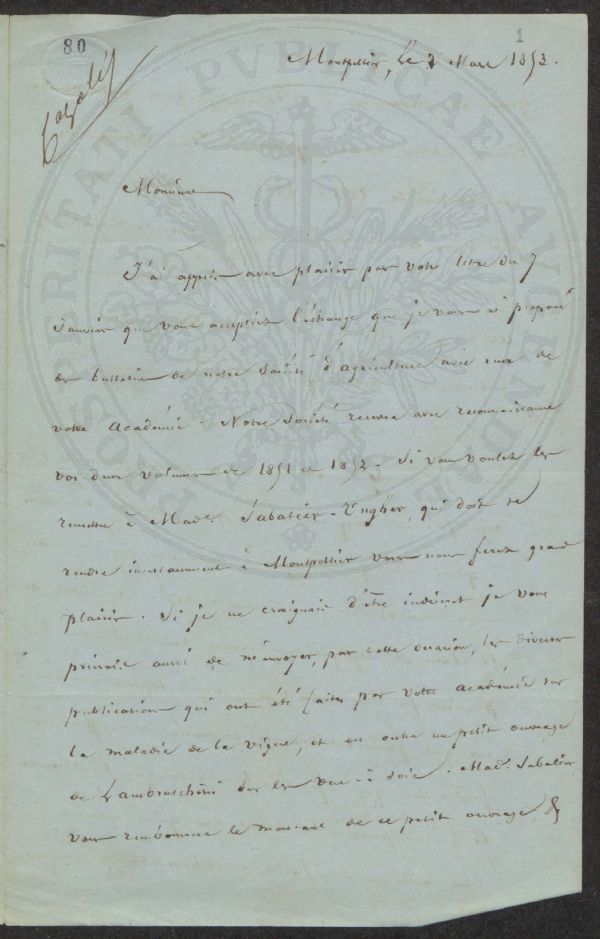 80
1
Cazalis
Montpellier, le 2 Mars 1853.
Monsieur
J'ai appris avec plaisir par votre lettre du 7
Janvier que vous acceptiez l'échange que je vous ai proposé
des bulletins de notre Société d'agriculture avec ceux de
votre Académie. Notre Société recevra avec reconnaissance
vos deux volumes de 1851 et 1852. Si vous voulez les
remettre à Mad. Sabatier-Ungher, qui doit se
rendre incessamment à Montpellier vous nous ferez grand
plaisir. Si je ne craignais d'être indiscret je vous
prierais aussi de m'envoyer, par cette occasion, les diverses
publications qui ont été faites par votre Académie sur
la maladie de la vigne, et en outre un petit ouvrage
de Lambruschini sur les vers à soie. Mad. Sabatier
vous remboursera le montant de ce petit ouvrage &
PROSPERITATI PVBLICAE AVGENDAE